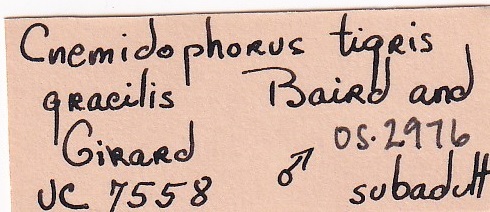 Cnemidophorus tigris
gracilis Baird and
Girard OS.2976
UC 7558 ♂ subadult